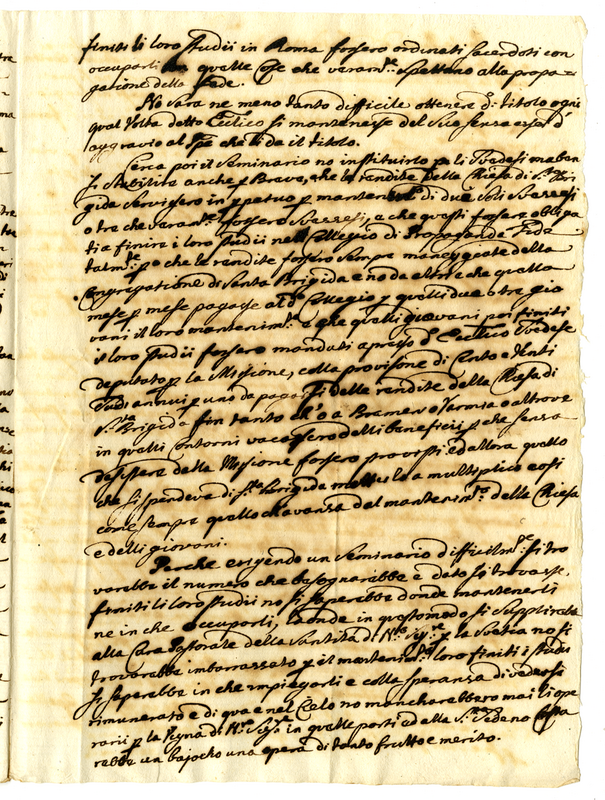 finiti li loro studii in Roma fossero ordinati sacerdoti con
occuparli in quelle cose che veram.te spettano alla propa=
gatione della fede.
No sara ne meno tanto difficile ottenere d.o titolo ogni
qual volta detto Ecc.lico si mantenesse del suo senza esser d'
aggravio al che li da il titolo.
Cerca poi il Seminario no instituirlo p li Svedesi ma ben
si stabilire anche p Breve, che le rendite della Chiesa di S.ta Bri
gida servissero in perpetuo p mantenim.to di due soli Svezzesi
o tre che veram.te fossero Svezzesi, e che questi fossero obliga
ti a finire i loro studii nel Collegio di Propaganda Fide
talm.te p o che le rendite fossero sempre maneggiate della
Congregatione di Santa Brigida e no da altri che quella
mese p mese pagasse al d.o Collegio p quelli due o tre gio
vani il loro mantenim.to e che quelli giovani poi finiti
il loro studii fossero mandati apresso d.o Ecc.lico Svedese
deputato p la Missione, colla provisione di Cento e Venti
scudi annui p uno da pagarsi delle rendite della Chiesa di
S.ta Brigida fin tanto ch'o a Bremen o Varmia o altrove
in quelli contorni vacassero delli beneficii p che senza
desistere della Missione fossero provisti ed allora quello
che si spendeva di S.ta Brigida metterlo a multiplico e così
come sempre quello ch'avanza del mantenim.to della Chiesa
e delli giovani.
Perche erigendo un Seminario difficilm.te si tro
varebbe il numero che besognarebbe e dato si trovasse,
finiti li loro studii no si saperebbe donde mantenerli
ne in che occuparli, la onde in questo modo si supplirebbe
alla Cura Pastorale della Santità di N.ro Sig.re p la Svetia no si
trovarebbe imbarrazzato p il mantenim.to loro finiti i studii
si saperebbe in che impiegarli e colla speranza di vedersi
rimunerato e di qua e nel Cielo no mancharebbero mai li ope
rarii p la Vigna di N.ro Sig.re in quelle parti ed alla S.ta Sede no costa
rebbe un bajocho una opera di tanto frutto e merito.